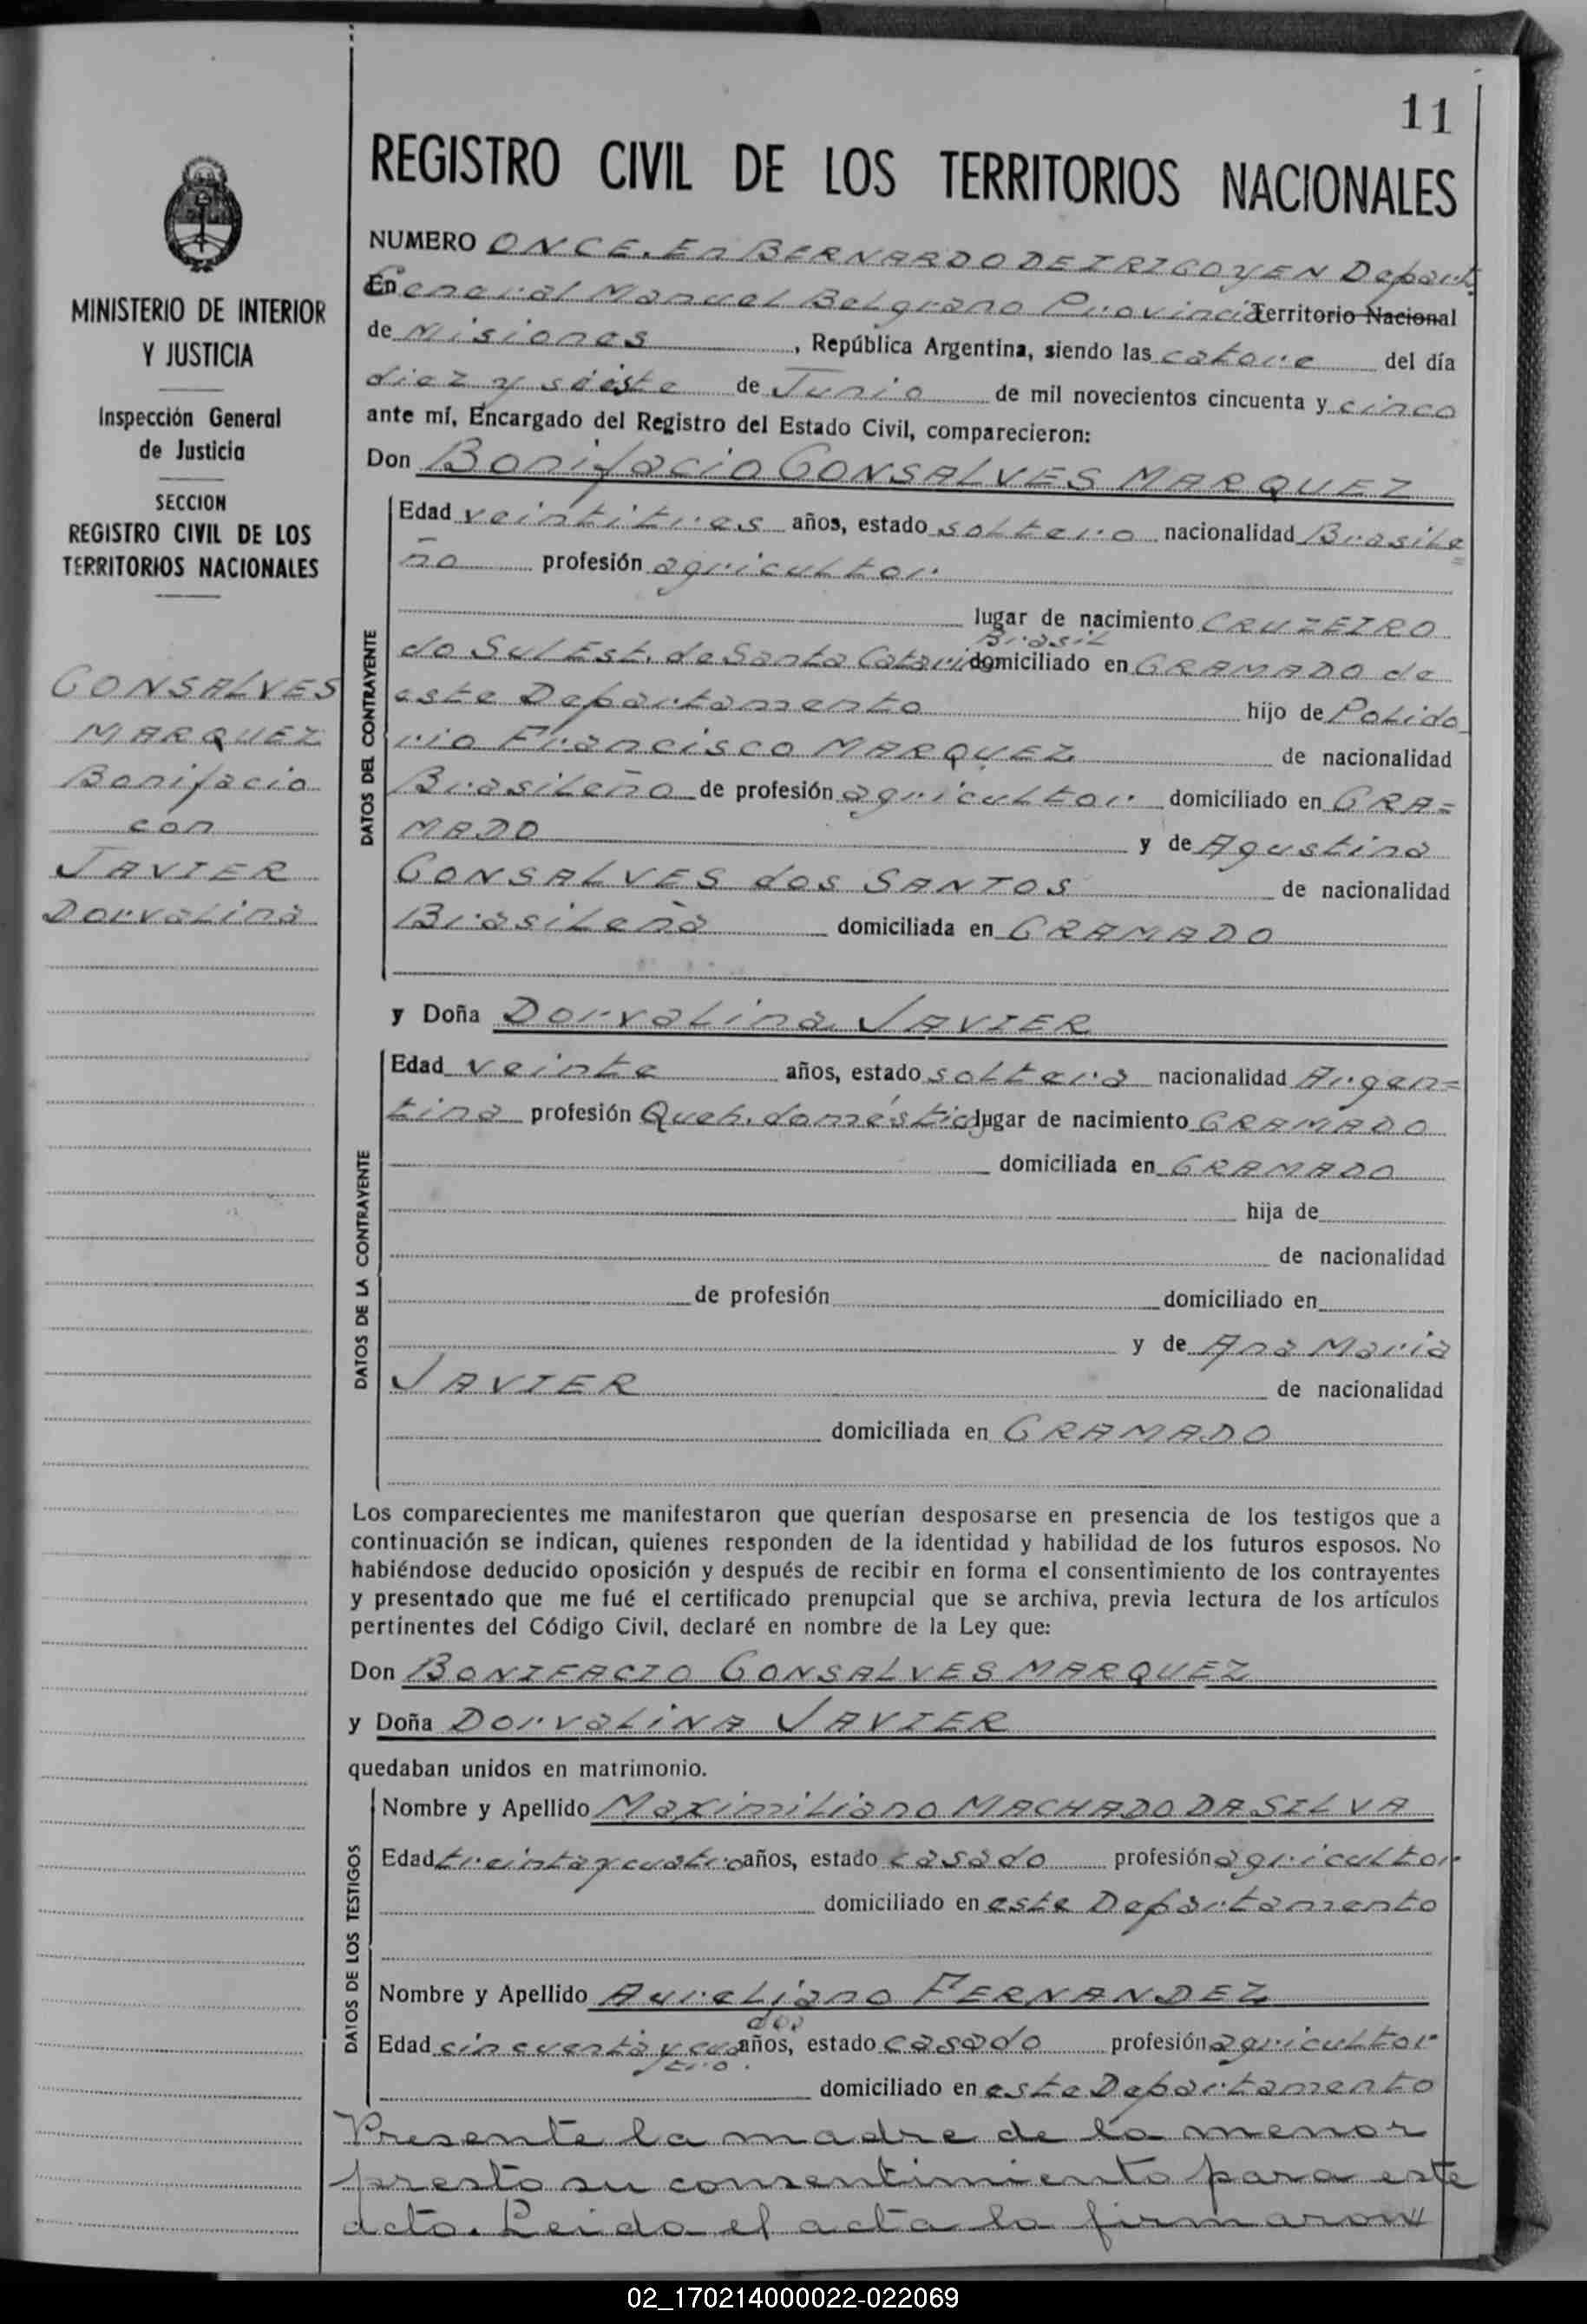 11
REGISTRO CIVIL DE LOS TERRITORIOS NACIONALES
MINISTERIO DE INTERIOR
Y JUSTICIA
Inspección General
de Justicia
SECCION
REGISTRO CIVIL DE LOS
TERRITORIOS NACIONALES
GONSALVES
MARQUEZ
Bonifacio
con
JAVIER
Dorvalina
NUMERO ONCE. En BERNARDO DE IRIGOYEN Depart.
En General Manuel Belgrano Provincia Territorio Nacional
de Misiones, República Argentina, siendo las catorce del día
diez y siete de Junio de mil novecientos cincuenta y cinco
ante mí, Encargado del Registro del Estado Civil, comparecieron:
Don Bonifacio GONSALVES MARQUEZ
DATOS DEL CONTRAYENTE
Edad veintitres años, estado soltero nacionalidad Brasile=
ño profesión agricultor
lugar de nacimiento CRUZEIRO
Brasil
do Sul Est. de Santa Catarina domiciliado en GRAMADO de
este Departamento hijo de Polido
rio Francisco MARQUEZ de nacionalidad
Brasileño de profesión agricultor domiciliado en GRA=
MADO y de Agustina
GONSALVES dos SANTOS de nacionalidad
Brasileña domiciliada en GRAMADO
y Doña Dorvalina JAVIER
DATOS DE LA CONTRAYENTE
Edad veinte años, estado soltera nacionalidad Argen=
tina profesión Queh. domésticos lugar de nacimiento GRAMADO
domiciliada en GRAMADO
hija de
de nacionalidad
de profesión domiciliado en
y de Ana Maria
JAVIER de nacionalidad
domiciliada en GRAMADO
Los comparecientes me manifestaron que querían desposarse en presencia de los testigos que a
continuación se indican, quienes responden de la identidad y habilidad de los futuros esposos. No
habiéndose deducido oposición y después de recibir en forma el consentimiento de los contrayentes
y presentado que me fué el certificado prenupcial que se archiva, previa lectura de los artículos
pertinentes del Código Civil, declaré en nombre de la Ley que:
Don BONIFACIO GONSALVES MARQUEZ
y Doña DorvaLiNA JAVIER
quedaban unidos en matrimonio.
DATOS DE LOS TESTIGOS
Nombre y Apellido Maximiliano MACHADO DA SILVA
Edad treinta y cuatro años, estado casado profesión agricultor
domiciliado en este Departamento
Nombre y Apellido Aureliano FERNANDEZ
dos
Edad cincuenta y cua años, estado casado profesión agricultor
tro.
domiciliado en este Departamento
Presente la madre de la menor
presto su consentimiento para este
acto. Leida el acta la firmaron//
02_170214000022-022069